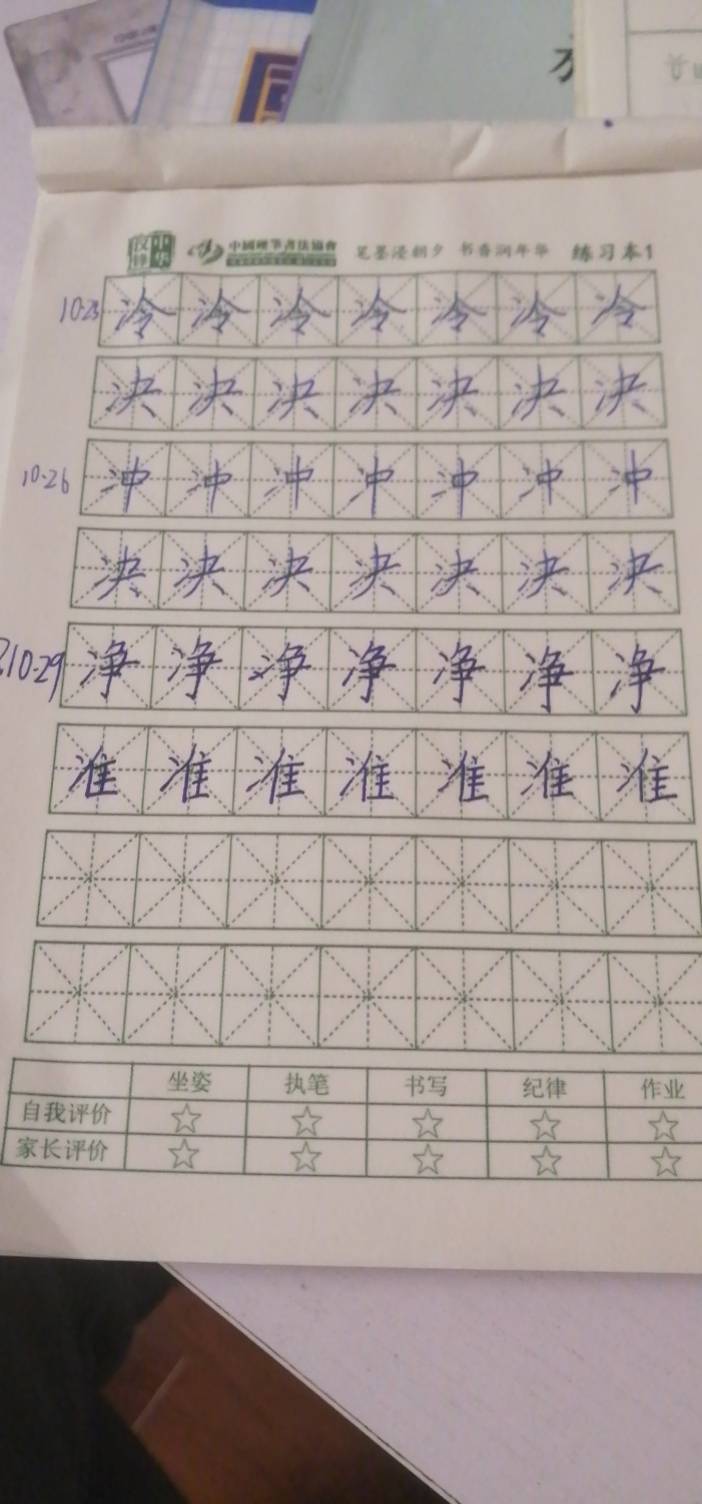 中國硬筆書法協會 笔墨浸朝夕 书香润年华 练习本1
10·23 冷 冷 冷 冷 冷 冷 冷
决 决 决 决 决 决 决
10·26 冲 冲 冲 冲 冲 冲 冲
决 决 决 决 决 决 决
10·29 净 净 净 净 净 净 净
准 准 准 准 准 准 准
坐姿 执笔 书写 纪律 作业
自我评价
家长评价